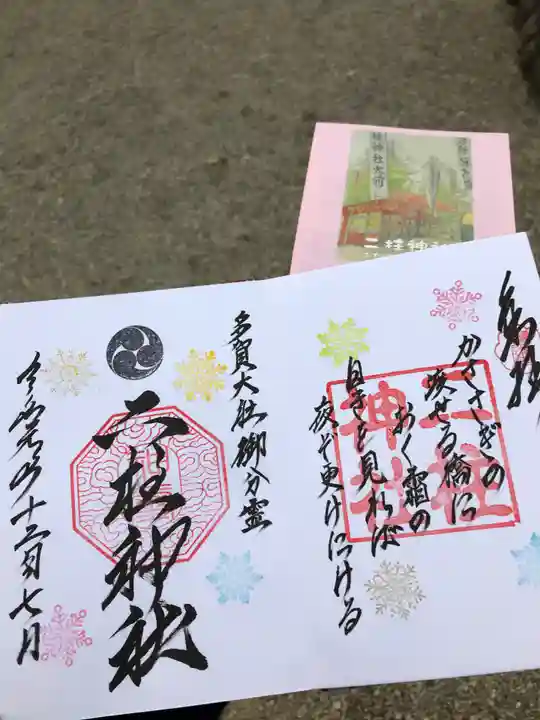 奉拝
かささぎの
渡せる橋に
おく霜の
白きを見れば
夜ぞ更けにける
二柱
神社
多賀大社御分霊
二柱神社
令和元年十二月七日
二柱神社